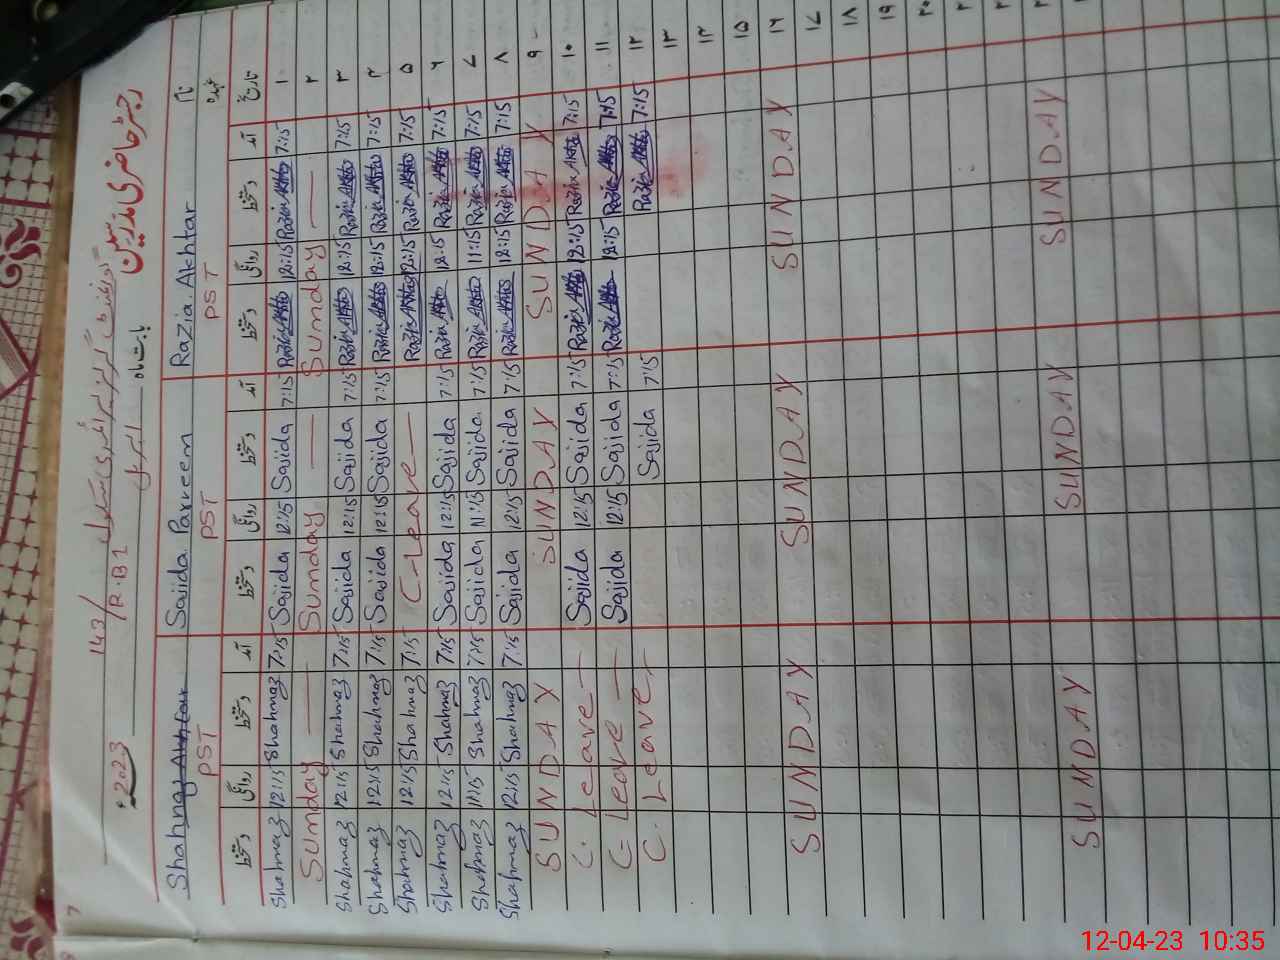 رجسٹر حاضری مدرسین
گورنمنٹ گرلز پرائمری سکول 143/R.B1
بابت ماہ اپریل 2023ء
نام Razia.Akhtar Sajida Parveen Shahnaz Akhtar
عہدہ PST PST PST
تاریخ آمد دستخط روانگی دستخط آمد دستخط روانگی دستخط آمد دستخط روانگی دستخط
۱ 7:15 Razia Akhtar 12:15 Razia Akhtar 7:15 Sajida 12:15 Sajida 7:15 Shahnaz 12:15 Shahnaz
۲ Sunday Sunday Sunday
۳ 7:15 Razia Akhtar 12:15 Razia Akhtar 7:15 Sajida 12:15 Sajida 7:15 Shahnaz 12:15 Shahnaz
۴ 7:15 Razia Akhtar 12:15 Razia Akhtar 7:15 Sajida 12:15 Sajida 7:15 Shahnaz 12:15 Shahnaz
۵ 7:15 Razia Akhtar 12:15 Razia Akhtar C-Leave 7:15 Shahnaz 12:15 Shahnaz
۶ 7:15 Razia Akhtar 12:15 Razia Akhtar 7:15 Sajida 12:15 Sajida 7:15 Shahnaz 12:15 Shahnaz
۷ 7:15 Razia Akhtar 11:15 Razia Akhtar 7:15 Sajida 11:15 Sajida 7:15 Shahnaz 11:15 Shahnaz
۸ 7:15 Razia Akhtar 12:15 Razia Akhtar 7:15 Sajida 12:15 Sajida 7:15 Shahnaz 12:15 Shahnaz
۹ SUNDAY SUNDAY SUNDAY
۱۰ 7:15 Razia Akhtar 12:15 Razia Akhtar 7:15 Sajida 12:15 Sajida C. Leave
۱۱ 7:15 Razia Akhtar 12:15 Razia Akhtar 7:15 Sajida 12:15 Sajida C. Leave
۱۲ 7:15 Razia Akhtar 7:15 Sajida C. Leave
۱۳
۱۴
۱۵
۱۶ SUNDAY SUNDAY SUNDAY
۱۷
۱۸
۱۹
۲۰
SUNDAY SUNDAY SUNDAY
7
12-04-23 10:35